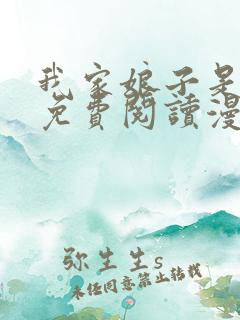 我家娘子是
免費閱讀漫
弥生生s
未经同意禁止转载